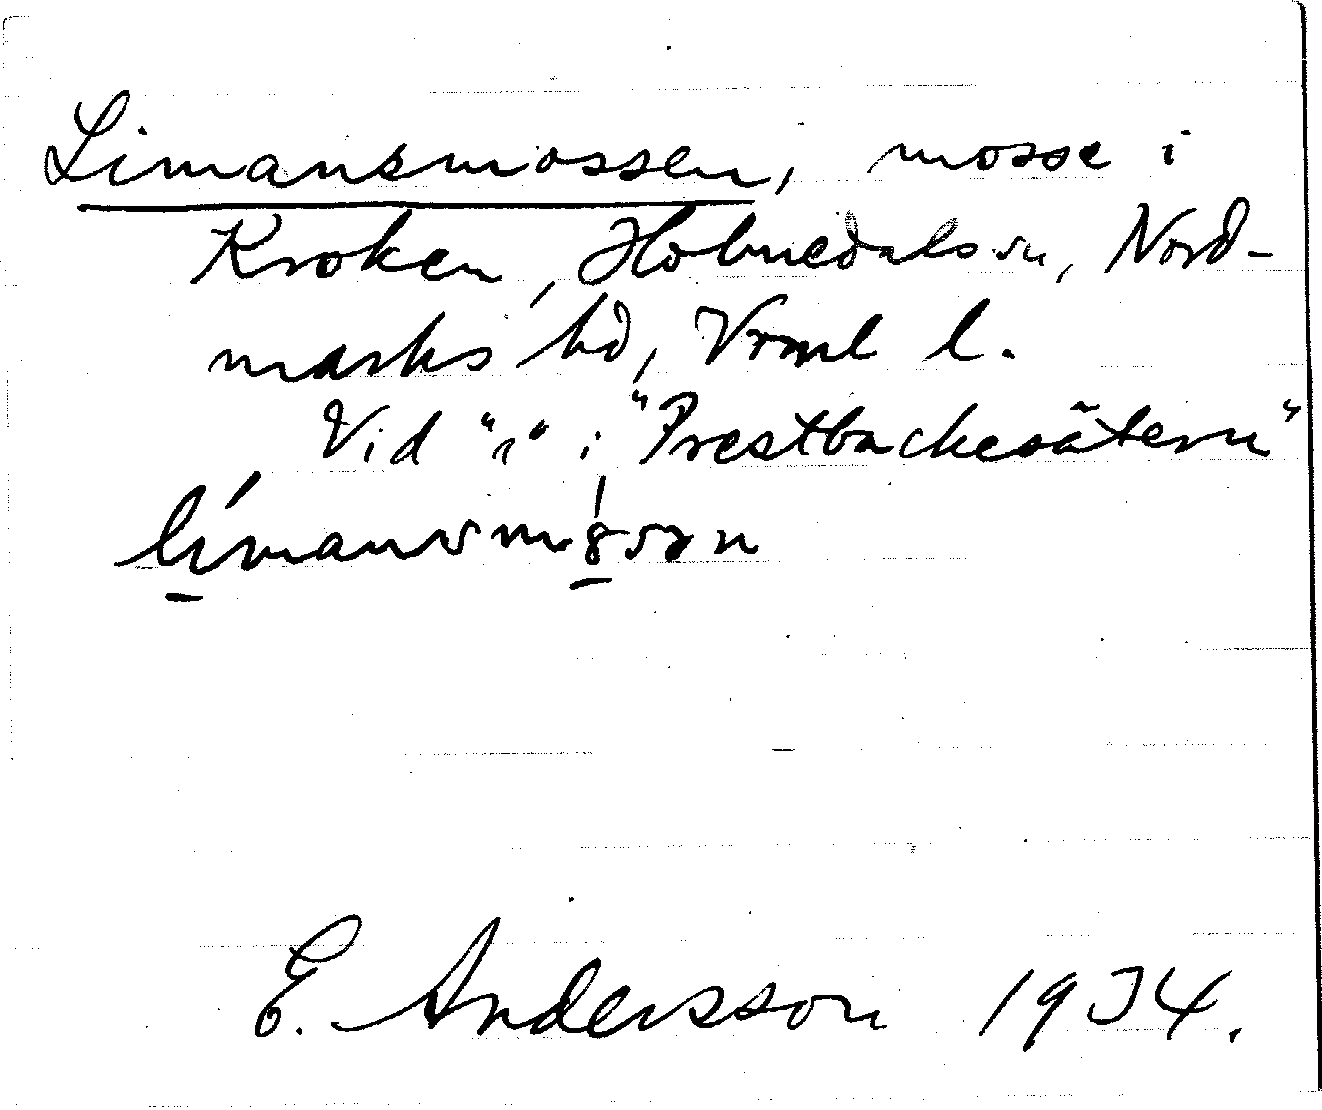 Limansmossen, mosse i
Kroken, Holmedals sn, Nord-
marks hd, Vrml l.
Vid "i" i "Prestbackesätern"
E. Andersson 1934.